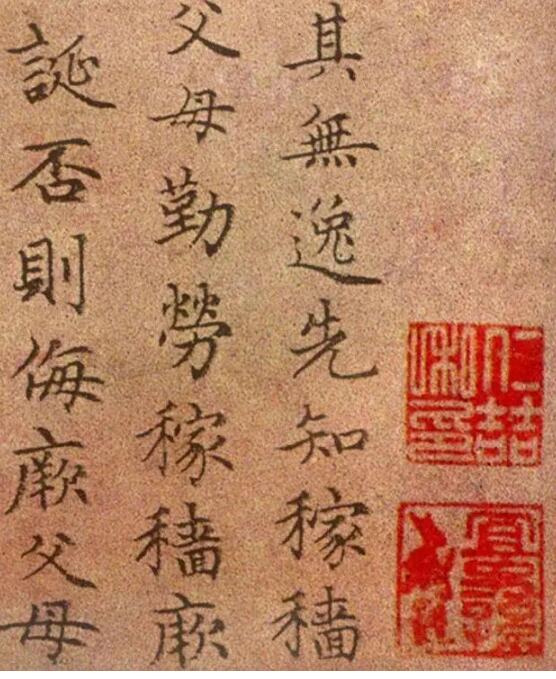 其無逸先知稼穡
父母勤勞稼穡厥
誕否則侮厥父母